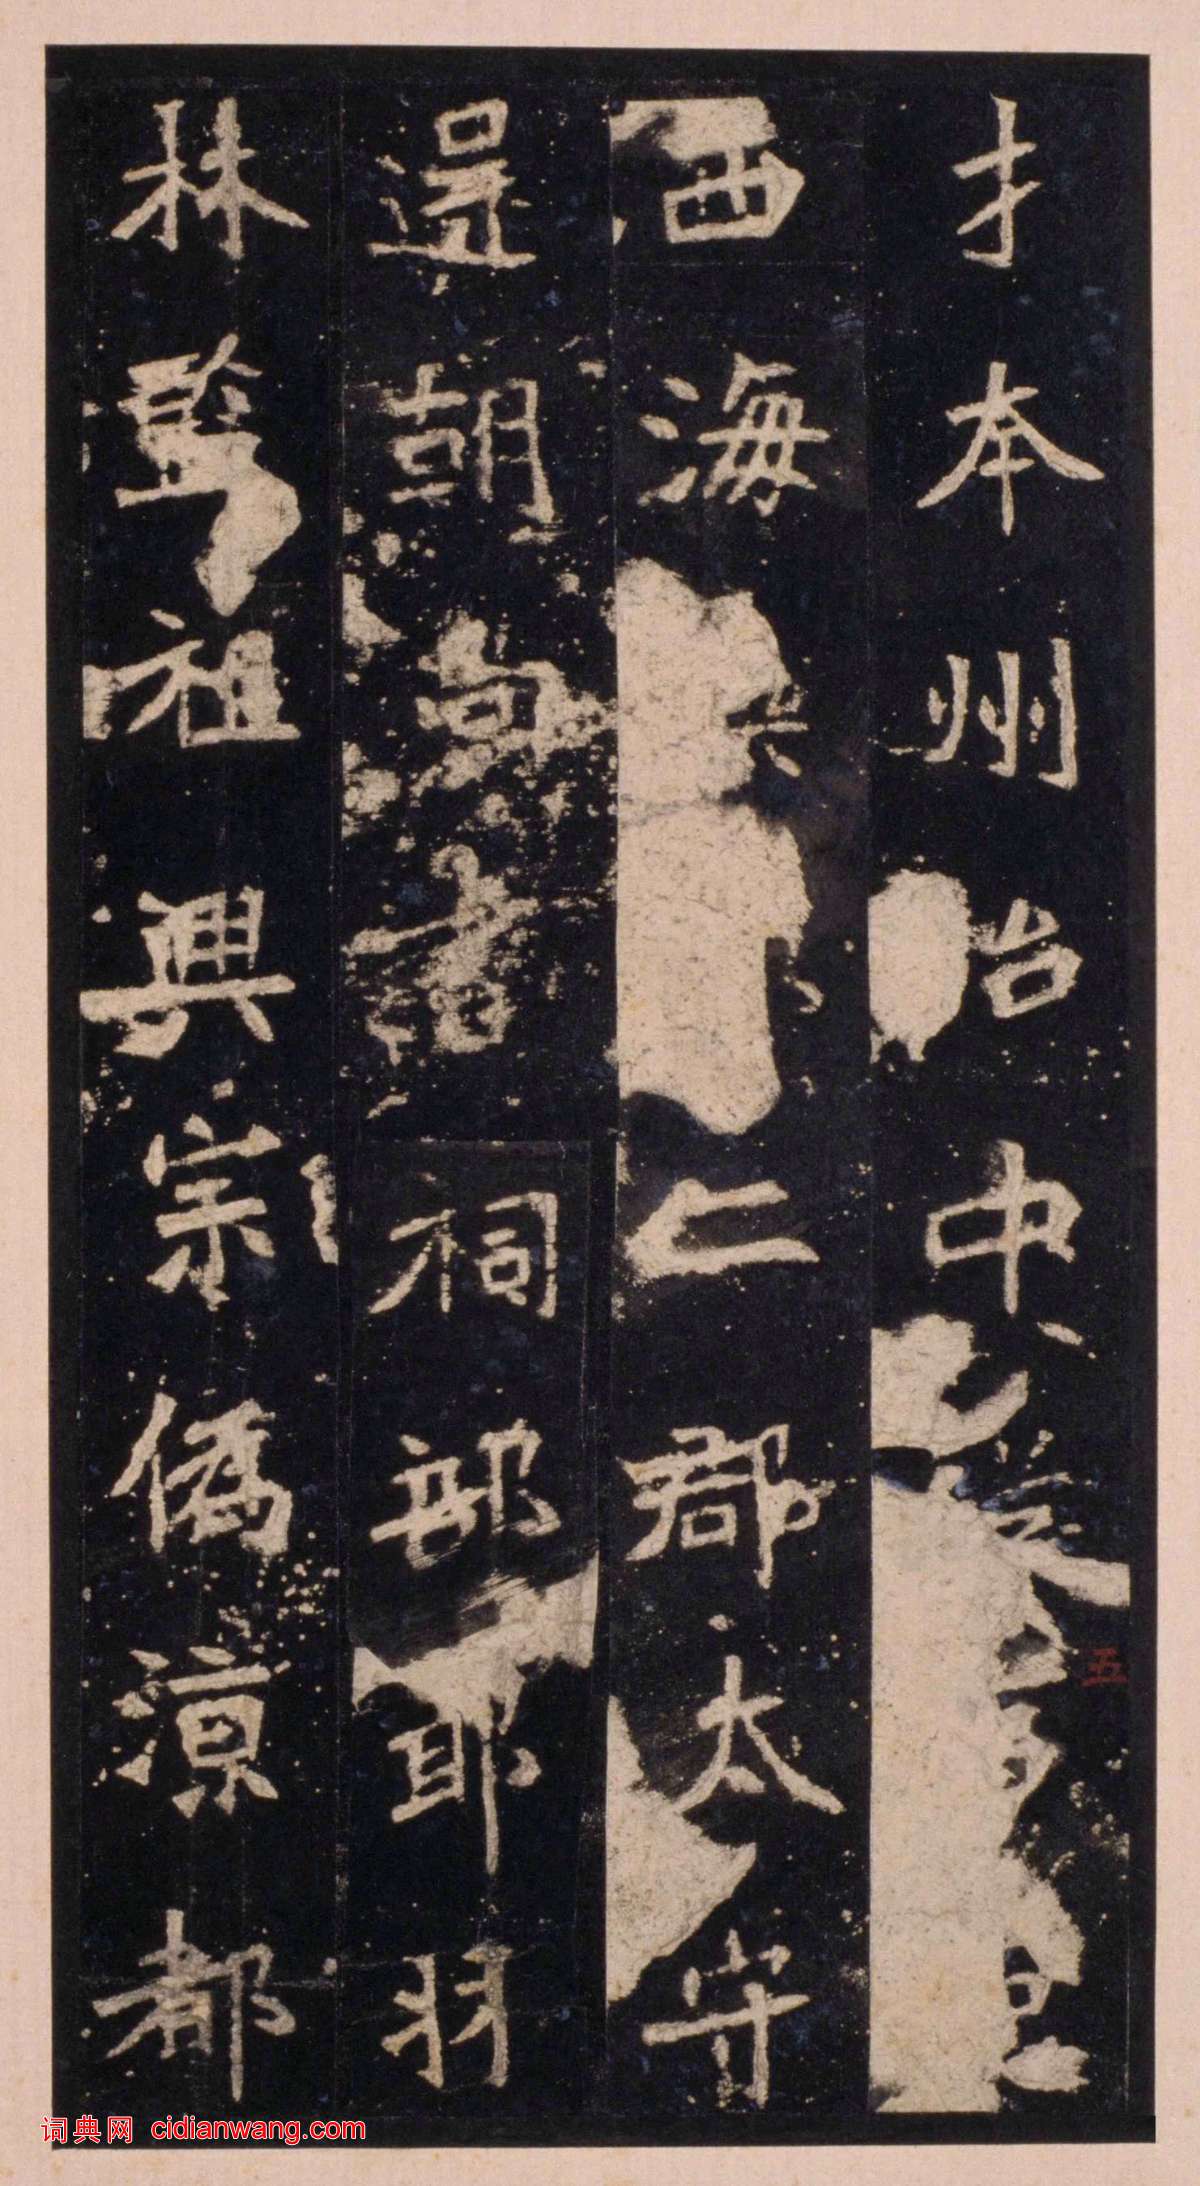 本州治中
西海仁郡太守
朝尚書祠部郎羽
林監祖興宗偽涼都
五
词典网 cidianwang.com